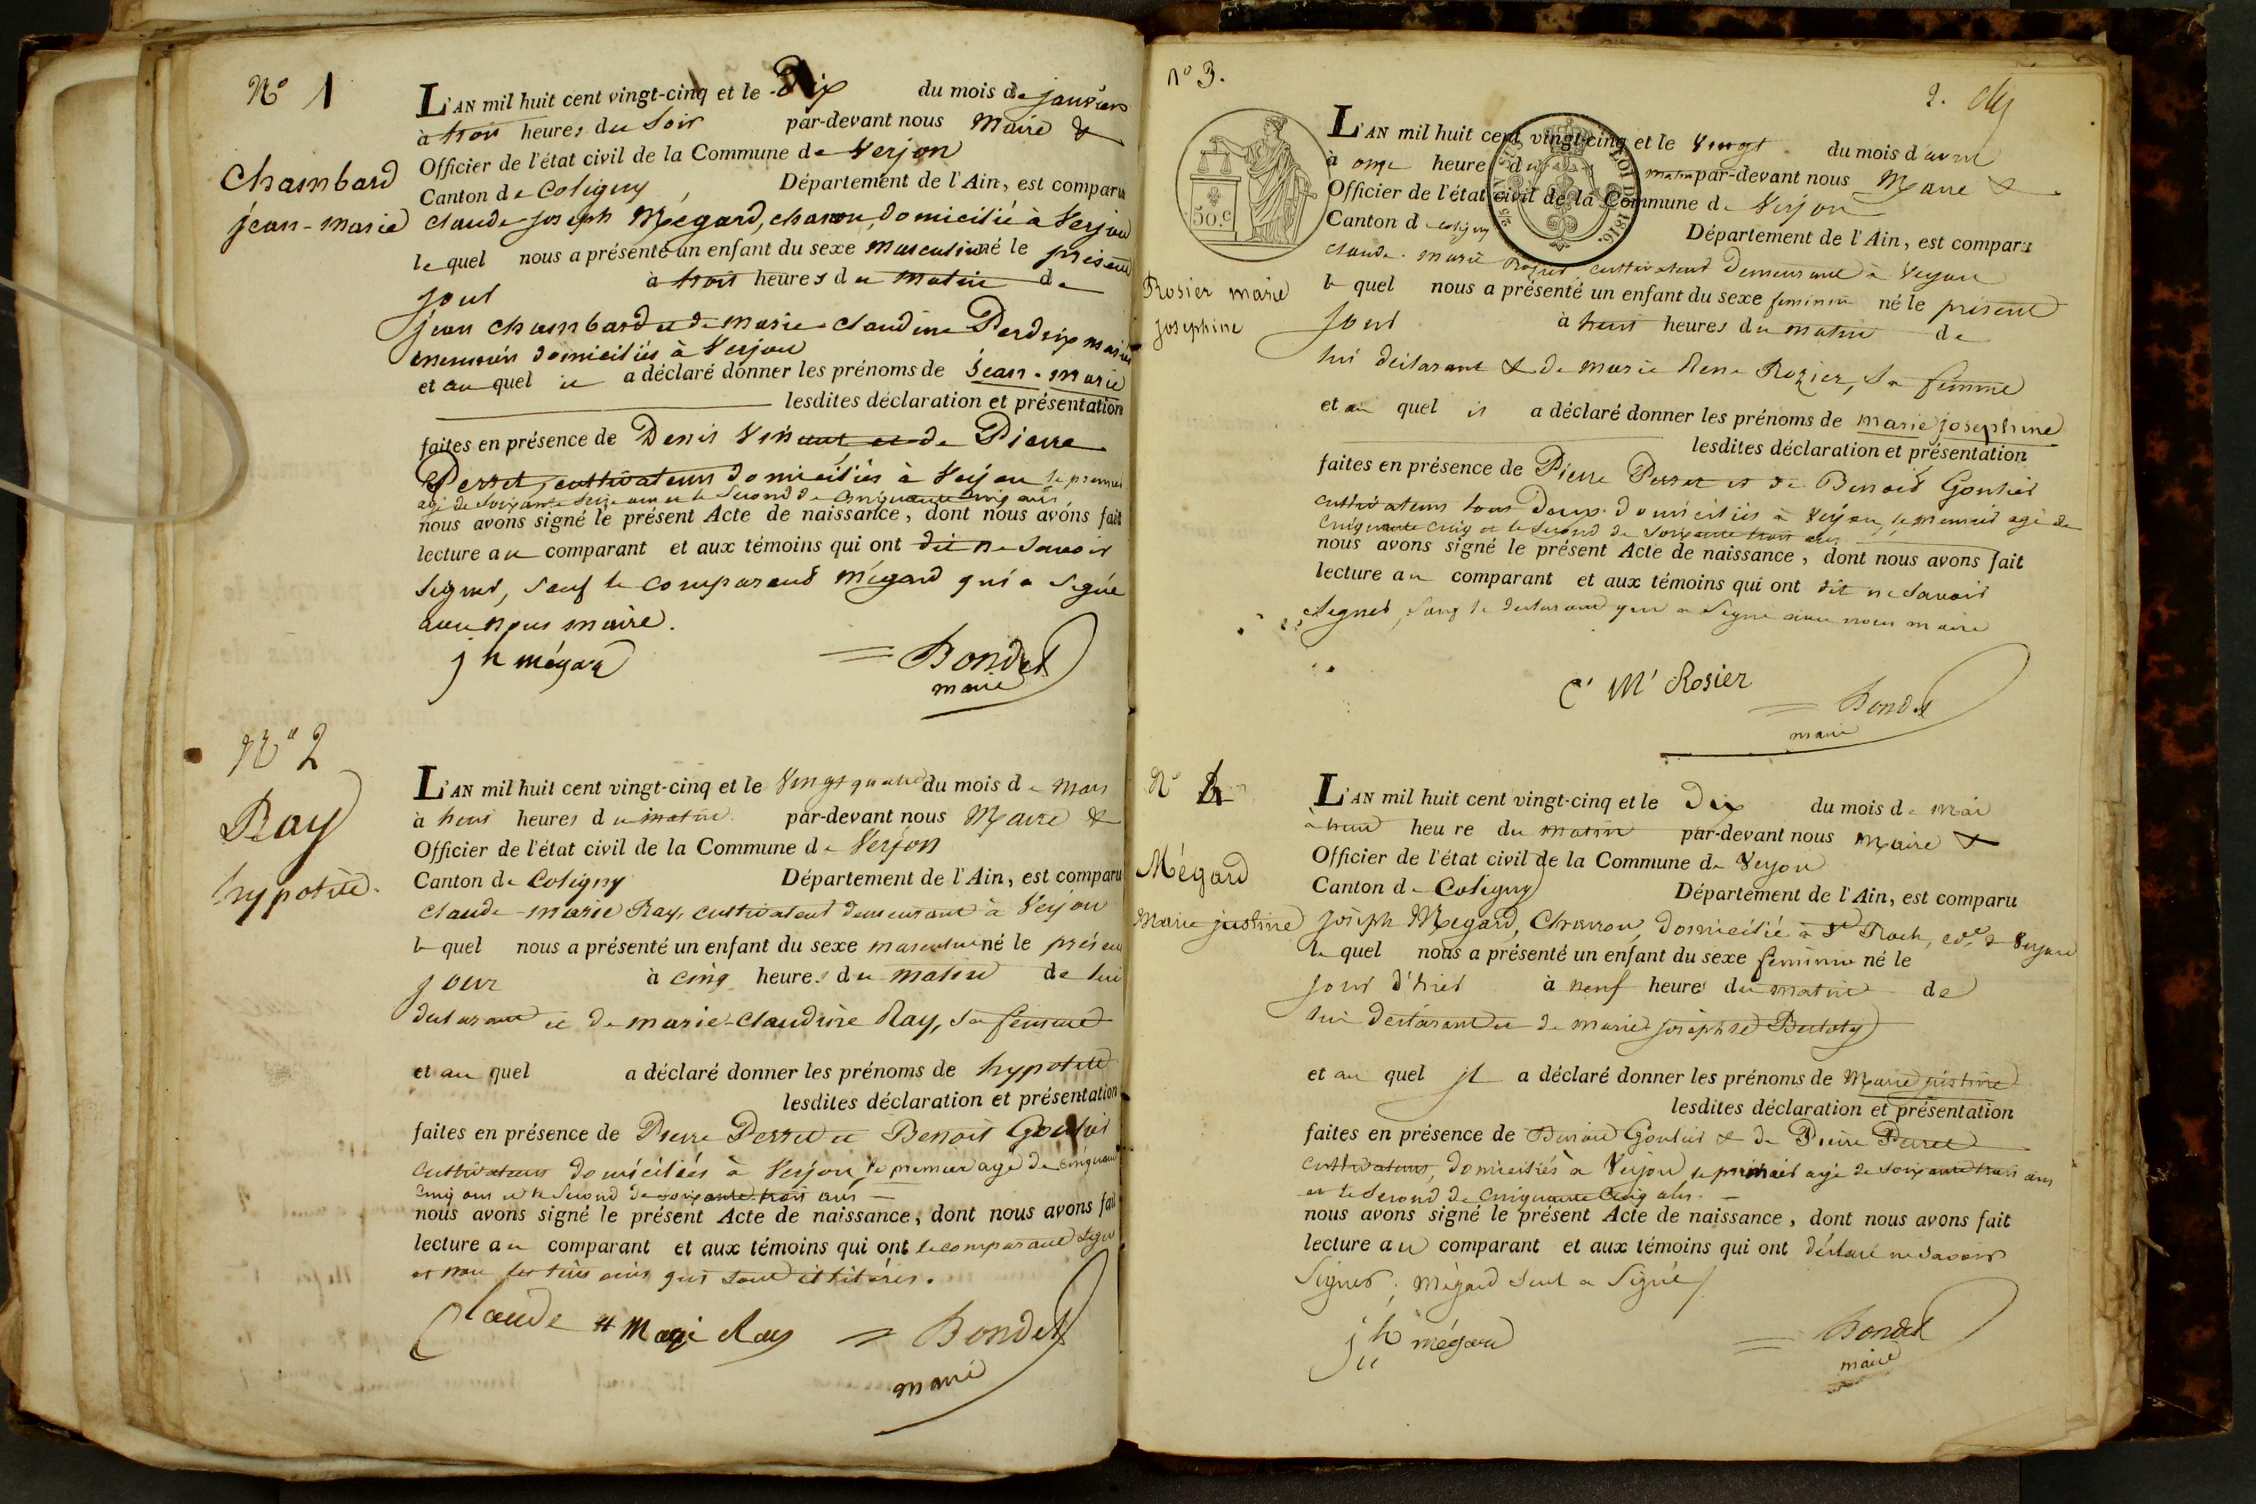 N° 1
Chambard
jean-marie
L'AN mil huit cent vingt-cinq et le Dix du mois de janvier
à trois heures du soir par-devant nous Maire &
Officier de l'état civil de la Commune de Verjon
Canton de Coligny, Département de l'Ain, est comparu
claude joseph Mégard, charon, domicilié à Verjon
lequel nous a présenté un enfant du sexe masculin né le présent
jour à trois heures du matin de
jean chambard et de marie claudine Perdrix mariés
domiciliés à Verjon
et auquel il a déclaré donner les prénoms de jean-marie
lesdites déclaration et présentation
faites en présence de Denis Vincent, et de Pierre
Perret, cultivateurs domiciliés à Verjon le premier
agé de soixante seize ans et le second de cinquante cinq ans
nous avons signé le présent Acte de naissance, dont nous avons fait
lecture au comparant et aux témoins qui ont dit ne savoir
signer, sauf le comparant mégard qui a signé
avec nous maire.
jh mégard Bondet
maire
N° 2
Ray
hypolite
L'AN mil huit cent vingt-cinq et le vingt quatre du mois de mars
à heures du matin par-devant nous Maire &
Officier de l'état civil de la Commune de Verjon
Canton de Coligny Département de l'Ain, est comparu
claude marie Ray, cultivateur demeurant à Verjon
lequel nous a présenté un enfant du sexe masculin né le présent
jour à cinq heures du matin de lui
declarant et de marie-claudine Ray, sa femme
et auquel a déclaré donner les prénoms de hypolite
lesdites déclaration et présentation
faites en présence de Pierre Perret et Benoit Goutier
cultivateurs domiciliés à Verjon, le premier agé de cinquante
cinq ans et le second de soixante trois ans
nous avons signé le présent Acte de naissance, dont nous avons fait
lecture au comparant et aux témoins qui ont le comparant signé
et non les témoins qui sont illitérés.
Claude Marie Ray Bondet
maire
n° 3.
2.
50.c
LOI DE 1816.
Rosier marie
josephine
L'AN mil huit cent vingt-cinq et le vingt du mois d'avril
à onze heure du matin par-devant nous Maire &
Officier de l'état civil de la Commune de Verjon
Canton de coligny Département de l'Ain, est comparu
claude marie Rosier cultivateur demeurant à Verjon
lequel nous a présenté un enfant du sexe feminin né le présent
jour à heures du matin de
lui declarant & de marie Rozier, sa femme
et au quel il a déclaré donner les prénoms de marie josephine
lesdites déclaration et présentation
faites en présence de Pierre Perret et de Benoit Goutier
cultivateurs tous Deux domiciliés à Verjon, le premier agé de
cinquante cinq et le second de soixante trois ans
nous avons signé le présent Acte de naissance, dont nous avons fait
lecture au comparant et aux témoins qui ont dit ne savoir
signer, sauf le declarant qui a signé avec nous maire
C' M' Rosier Bondet
maire
N° 4
Mégard
Marie justine
L'AN mil huit cent vingt-cinq et le dix du mois de mai
à heure du matin par-devant nous Maire &
Officier de l'état civil de la Commune de Verjon
Canton de Coligny Département de l'Ain, est comparu
joseph Mégard, Charron, domicilié à St Roch, de Verjon
le quel nous a présenté un enfant du sexe féminin né le
jour d'hier à neuf heure du matin de
lui declarant et de marie josephte
et au quel il a déclaré donner les prénoms de Marie justine
lesdites déclaration et présentation
faites en présence de Benoit Goutier & de Pierre Perret
cultivateurs, domiciliés à Verjon le premier agé de soixante trois ans
et le second de cinquante cinq ans.
nous avons signé le présent Acte de naissance, dont nous avons fait
lecture au comparant et aux témoins qui ont déclaré ne savoir
signer; mégard seul a signé
jh mégard Bondet
maire